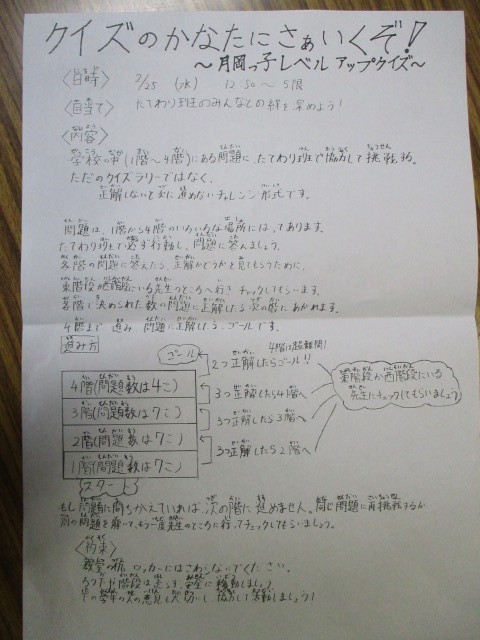 クイズのかなたにさぁいくぞ!
〜月岡っ子レベルアップクイズ〜
〈日時〉 2/25 (水) 12:50〜5限
〈目当て〉 たてわり班のみんなとの絆を深めよう!
〈内容〉
学校の中(1階〜4階)にある問題に、たてわり班で協力して挑戦する。
ただのクイズラリーではなく、
正解しないと次に進めないチャレンジ形式です。
問題は、1階から4階のいろいろな場所にはってあります。
たてわり班で必ず行動し、問題に答えましょう。
各階の問題に答えたら、正解かどうかを見てもらうために、
東階段か西階段にいる先生のところへ行き チェックしてもらいます。
各階で決められた数の問題に正解したら 次の階にあがれます。
4階まで進み、問題に正解したら、ゴールです。
進み方
ゴール
2つ正解したらゴール!!
4階は超難問!
4階(問題数は4こ)
3つ正解したら4階へ
3階(問題数は7こ)
3つ正解したら3階へ
2階(問題数は7こ)
3つ正解したら2階へ
1階(問題数は7こ)
スタート
東階段か西階段にいる
先生にチェックしてもらいましょう
もし問題に間ちがえていれば、次の階に進めません。同じ問題に再挑戦するか
別の問題を解いて、もう一度先生のところに行ってチェックしてもらいましょう。
〈約束〉
教室の机、ロッカーにはさわらないでください。
ろう下や階段は走らず、安全に移動しましょう。
下の学年の人の意見も大切にし 協力して活動しましょう!